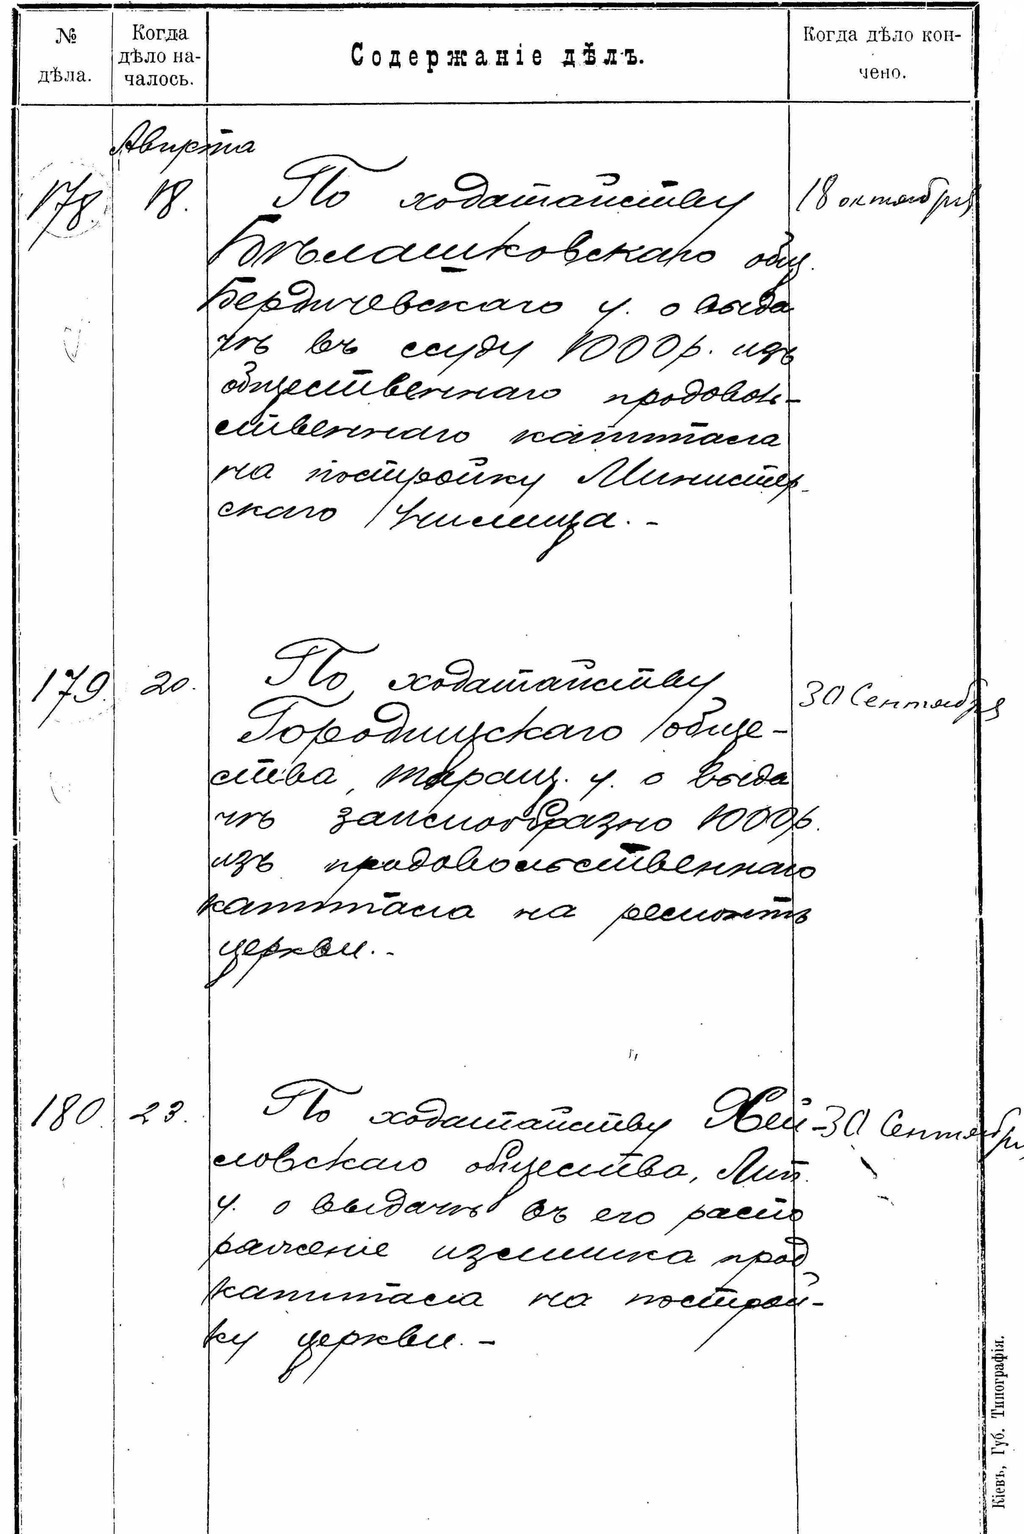 № дѣла.
Когда дѣло на-чалось.
Содержаніе дѣлъ.
Когда дѣло кон-чено.
Августа
178. 18. По ходатайству 18 октября
Бѣлашковскаго общ.
Бердичевскаго у. о выда
чѣ въ ссуду 1000 р. изъ
общественнаго продоволь-
ственнаго капитала
на постройку Министер-
скаго училища. -
179. 20. По ходатайству 30 Сентября
Городищскаго обще-
ства, Таращ. у. о выда
чѣ заимообразно 1000 р.
изъ продовольственнаго
капитала на ремонтъ
церкви. -
180. 23. По ходатайству Хей- 30 Сентября
ловскаго общества, Лип.
у. о выдачѣ въ его распо
ряженіе излишка прод.
капитала на построй-
ку церкви. -
Кіевъ, Губ. Типографія.